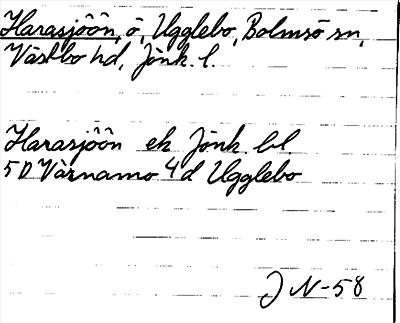 Harasjöön, ö, Ugglebo, Bolmsö sn,
Västbo hd, Jönk. l.
Harasjöön ek Jönk. bl.
5D Värnamo 4d Ugglebo
J N-58